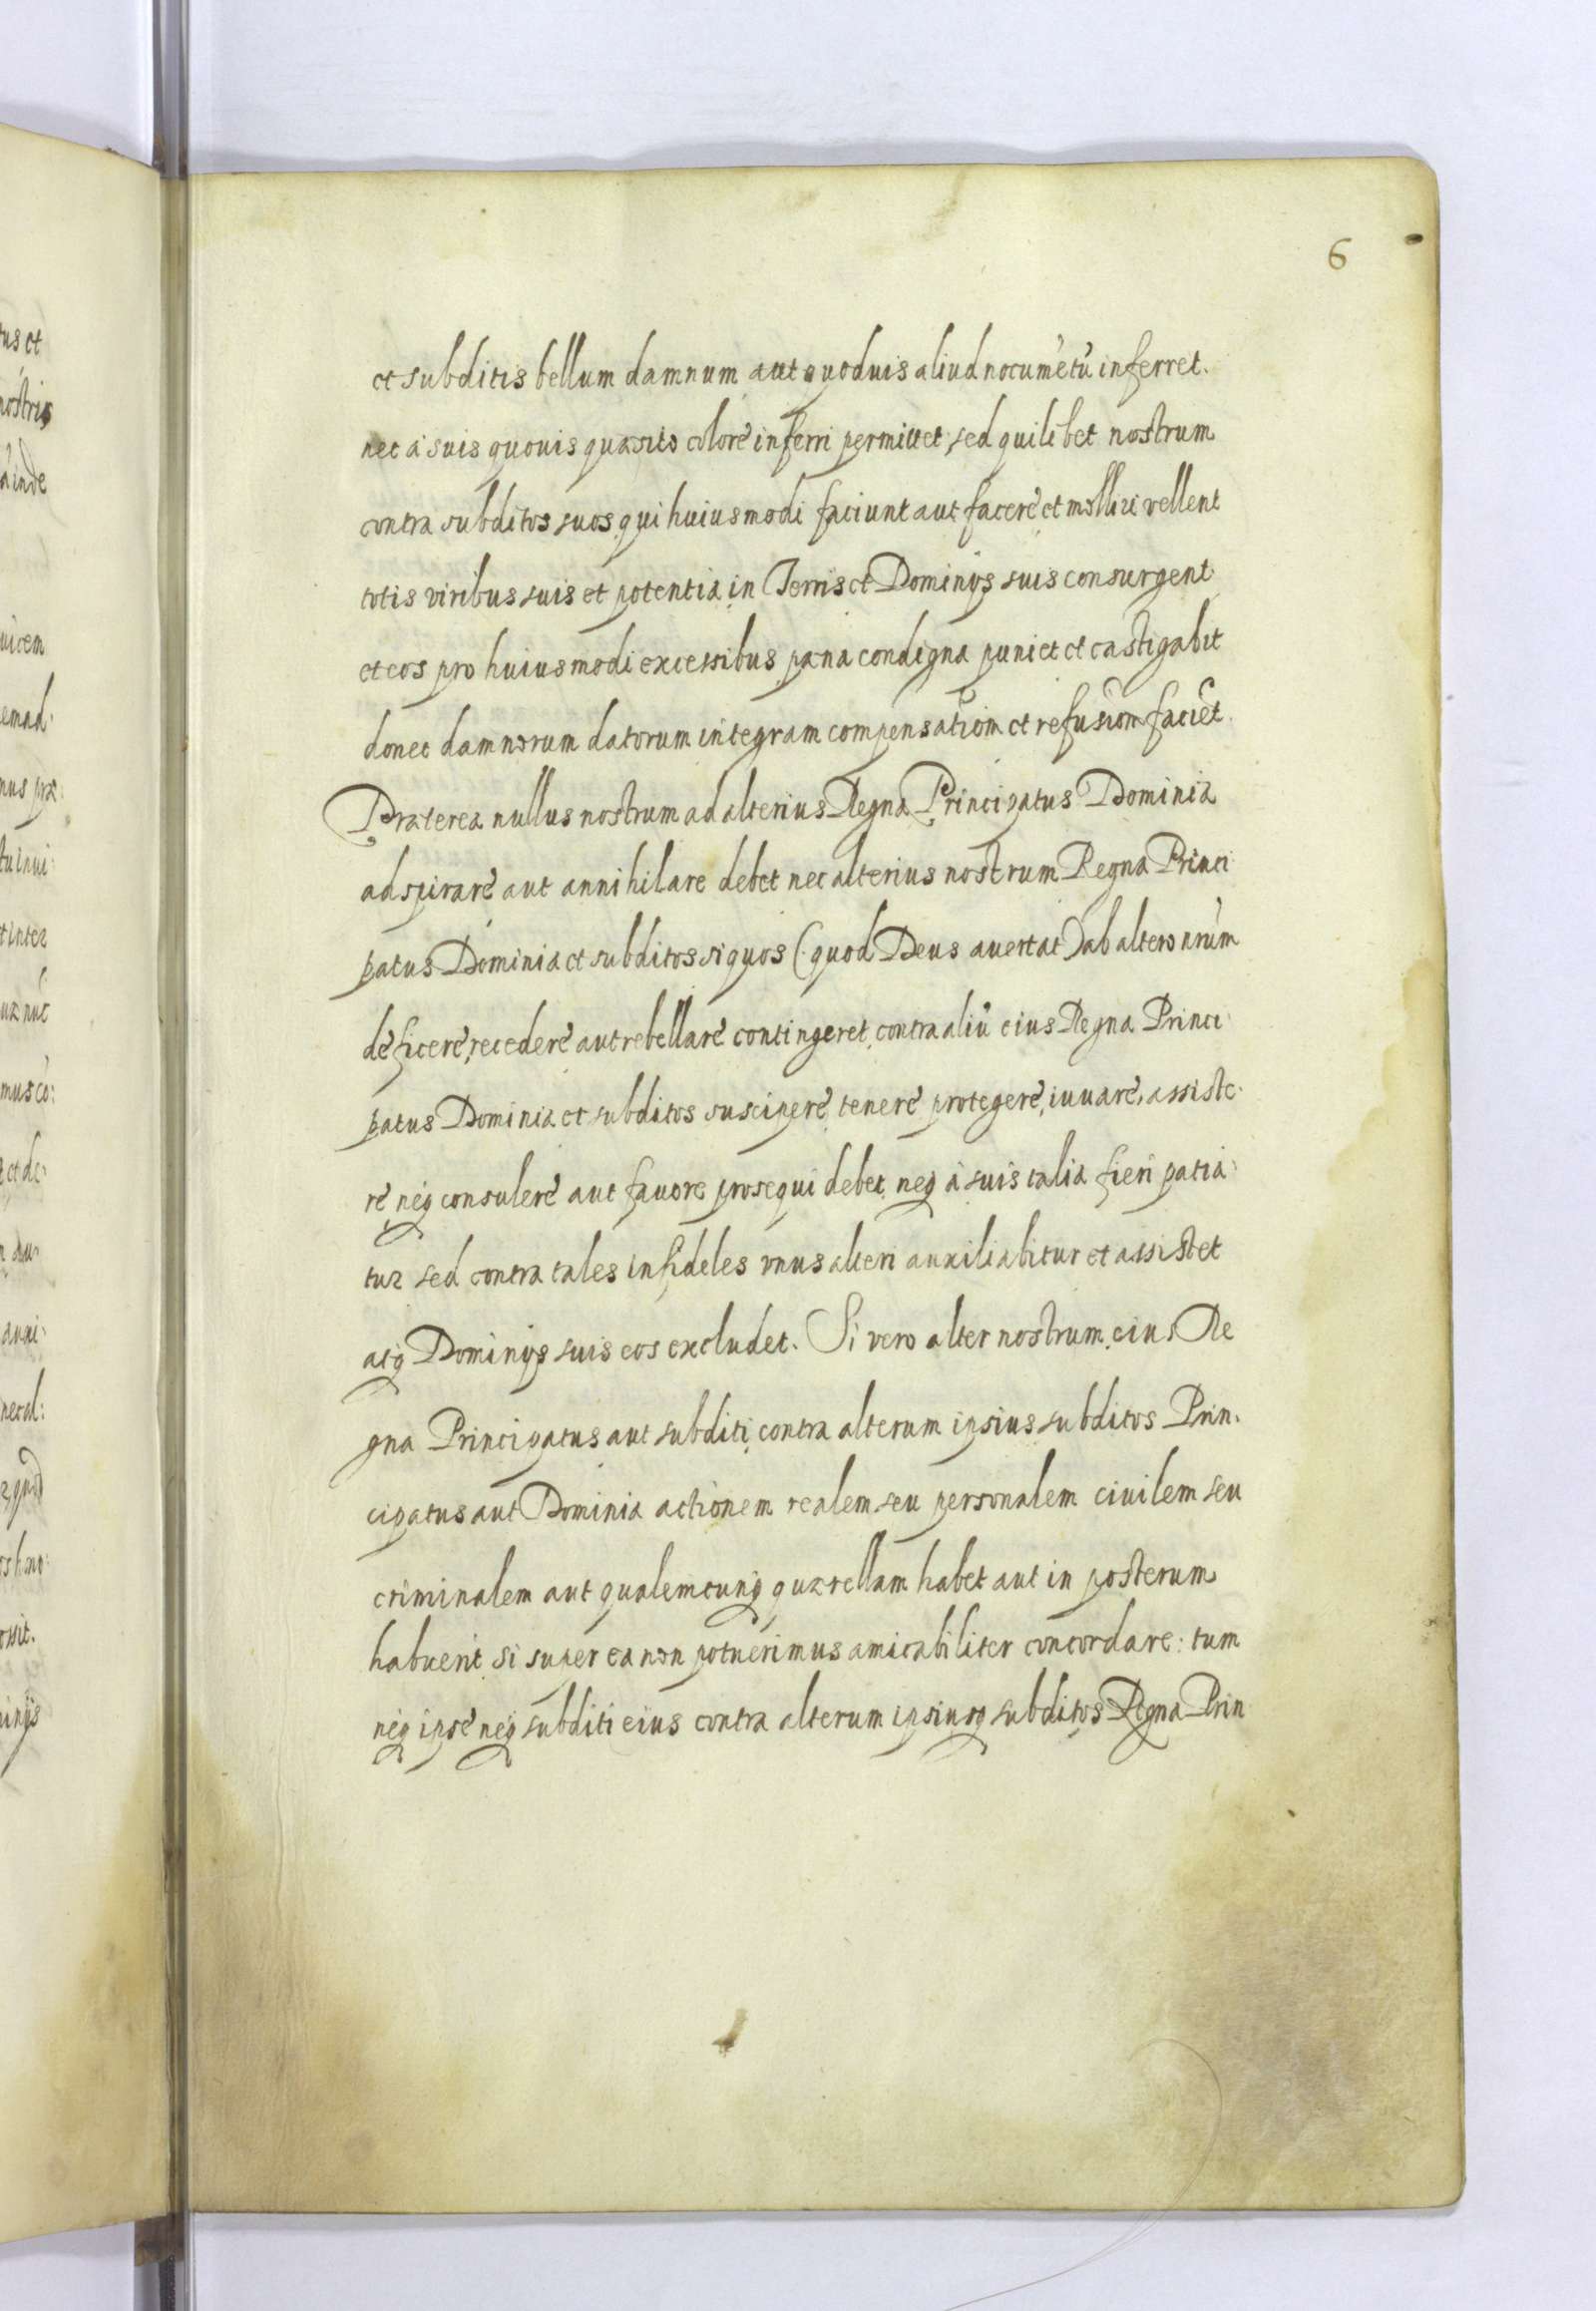 6
et subditis bellum damnum aut quoduis aliud nocumētū inferret.
nec à suis quouis quæsito colore inferri permittet, sed quilibet nostrum
contra subditos suos qui huiusmodi faciunt aut facere et molliri vellent
totis viribus suis et potentia in Terris et Dominijs suis consurgent
et eos pro huiusmodi excessibus pæna condigna puniet et castigabit
donec damnorum datorum integram compensatiōm et refusiōm faciēt.
Præterea nullus nostrum ad alterius Regna Principatus Dominia
adspirare aut annihilare debet nec alterius nostrum Regna Princi
patus Dominia et subditos si quos (quod Deus auertat) ab altero nrūm
deficere, recedere aut rebellare contingeret, contra aliū eius Regna Princi
patus Dominia et subditos suscipere, tenere protegere, iuuare, assiste
re neq consulere aut fauore prosequi debet, neq à suis talia fieri patia
tur sed contra tales infideles vnus alteri auxiliabitur et assistet
atq Dominijs suis eos excludet. Si vero alter nostrum, eius Re
gna Principatus aut subditi, contra alterum ipsius subditos Prin
cipatus aut Dominia actionem realem seu personalem ciuilem seu
criminalem aut qualemcunq quærellam habet aut in posterum
habuerit, si super ea non potuerimus amicabiliter concordare: tum
neq ipse neq subditi eius contra alterum ipsiusq subditos Regna Prin